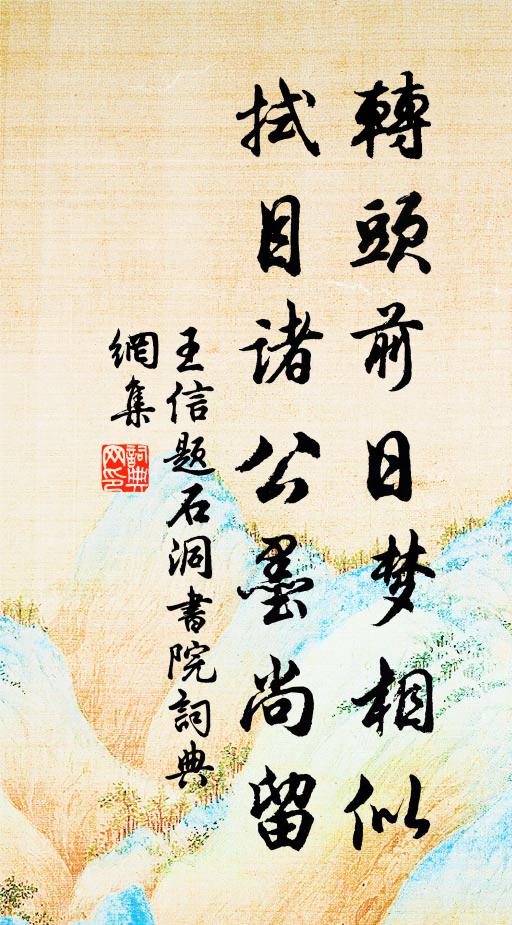 轉頭前日梦相似
拭目诸公墨尚留
王信题石洞書院詞典
網集
詞典
网印